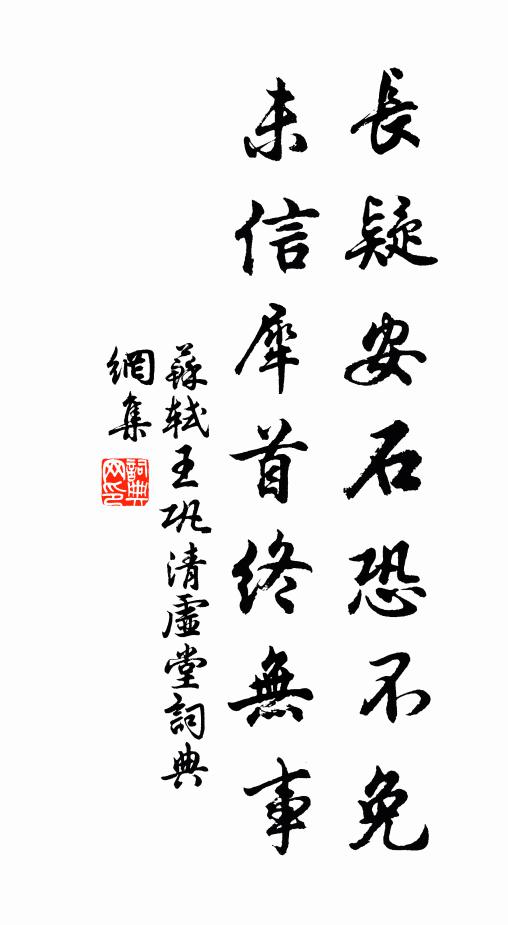 長疑安石恐不免
未信犀首終無事
蘇軾王巩清虛堂詞典
網集
詞典
网印